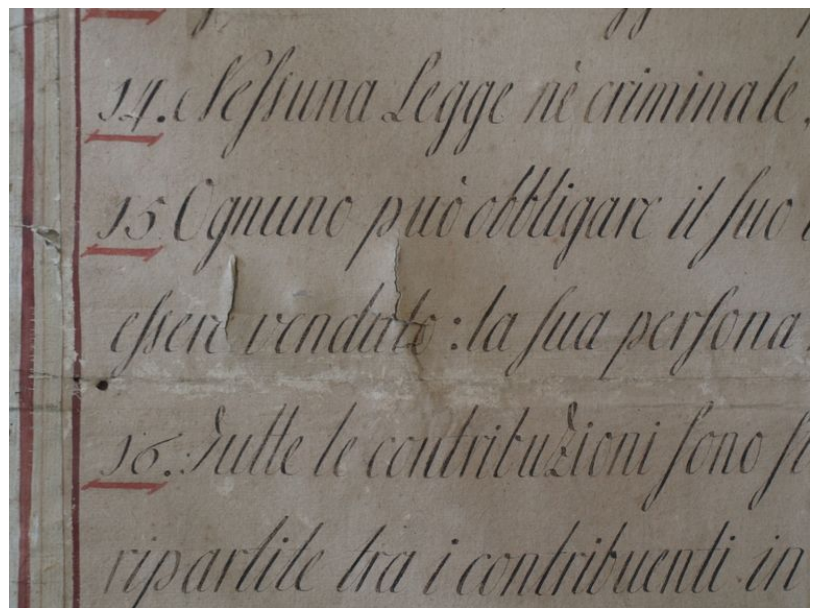 14. Nessuna Legge nè criminale,
15 Ognuno può obbligare il suo
essere venduto: la sua persona
16. Tutte le contribuzioni sono
ripartite tra i contribuenti in